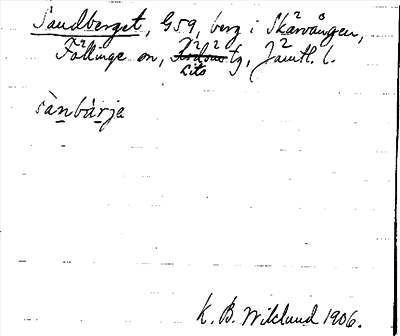 Sandberget, G59, berg i Skärvången,
Föllinge sn, Lits tg, Jämtl. l.
sànbárja
K. B. Wiklund 1906.